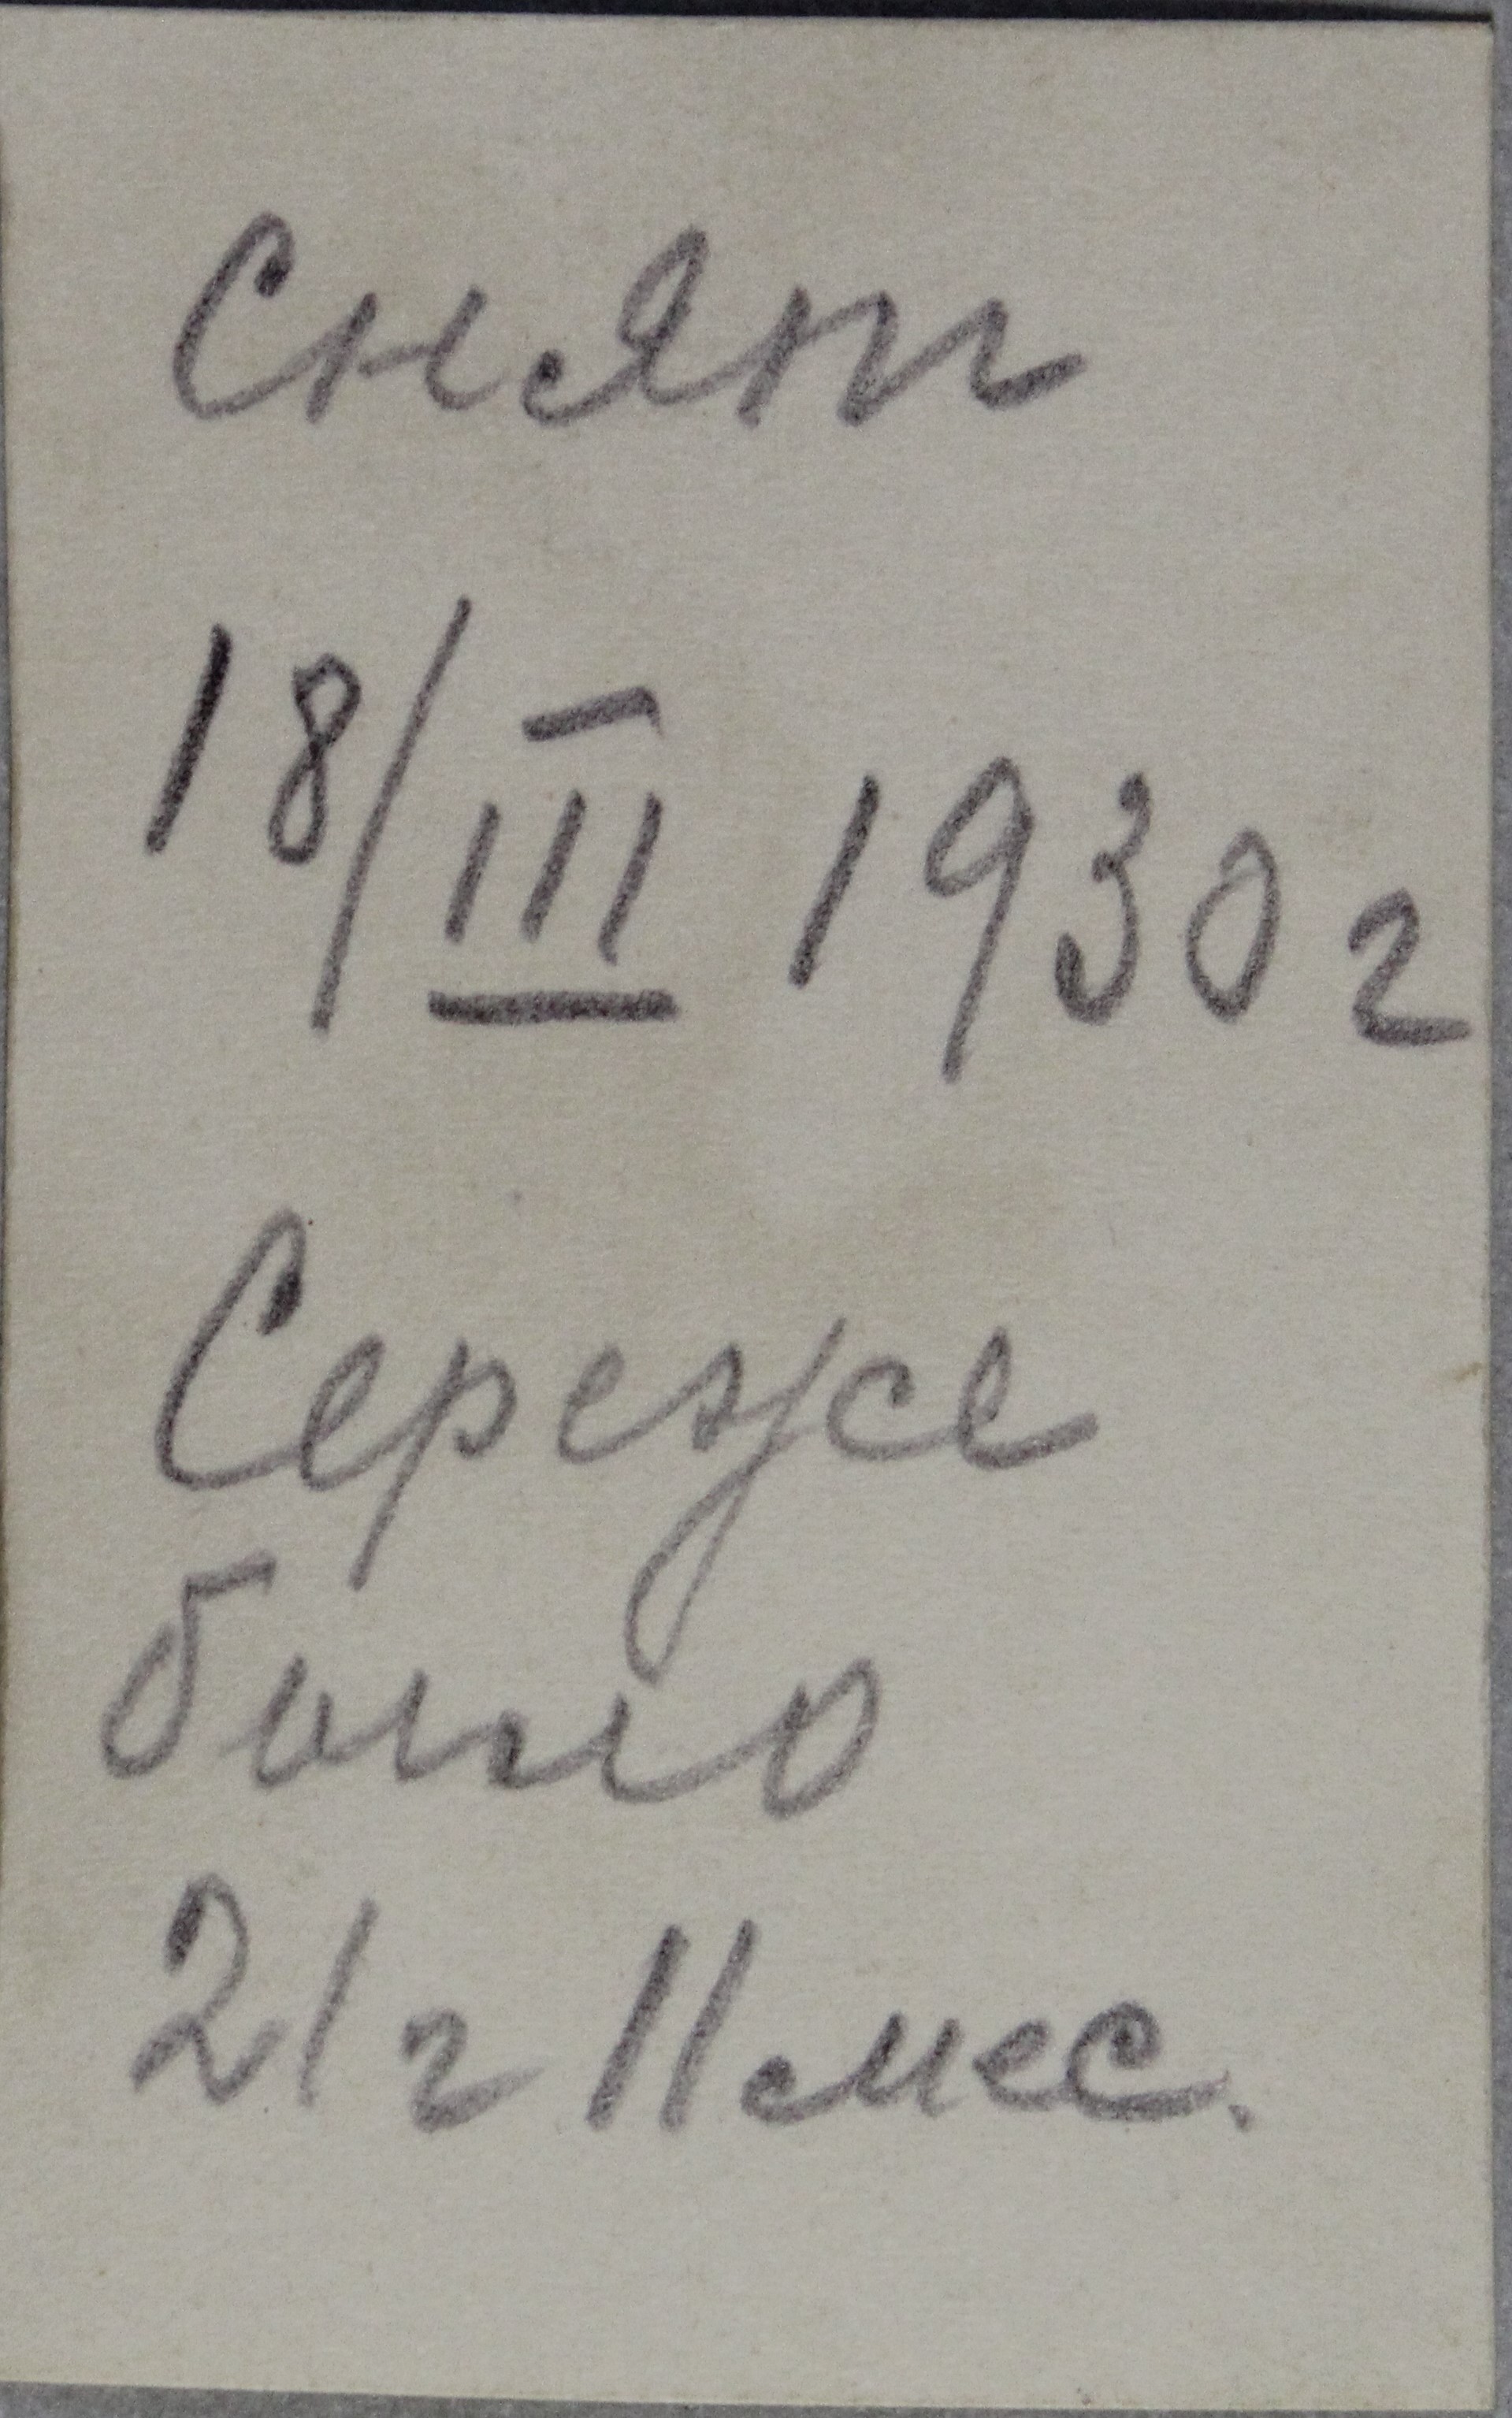 Снят
18/III 1930 г
Сереже
было
2/г 11 мес.